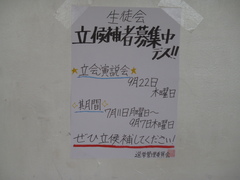 生徒会
立候補者募集中
デス!!
☆立会演説会☆
9月22日
木曜日
☆期間☆
7月11日月曜日〜
9月7日水曜日
ぜひ立候補してください!
選挙管理委員会